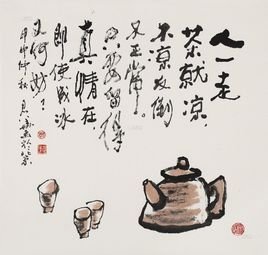 人一走
茶就凉，
不凉反倒
不正常。
只要留得
真情在，
即使成冰
又何妨。
甲申仲秋